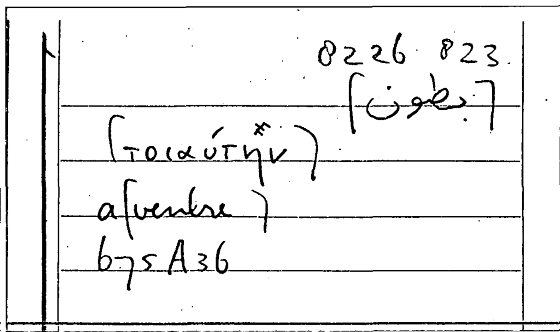 8226 823
[بطون]
[τοιαύτην*]
a[ventre]
b75A36